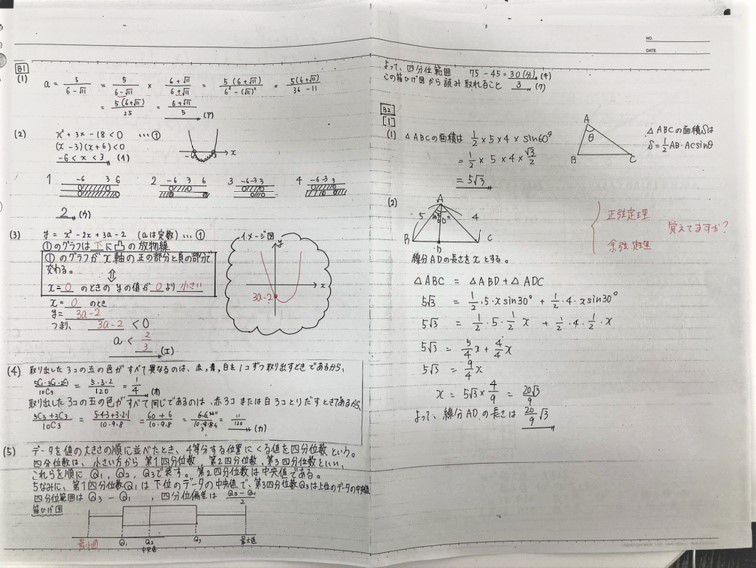 B1
(1) a = 5/(6-√11) = 5/(6-√11) × (6+√11)/(6+√11) = 5(6+√11)/(6²-(√11)²) = 5(6+√11)/(36-11)
= 5(6+√11)/25 = (6+√11)/5 (ア)
(2) x²+3x-18<0 …①
(x-3)(x+6)<0
-6<x<3 (イ)
x
1 -6 3 6
2 -6 3 6
3 -6 -3 3
4 -6 -3 3
2 (ウ)
(3) y = x²-2x+3a-2 (aは定数) …①
①のグラフは下に凸の放物線
①のグラフがx軸の正の部分と負の部分で
交わる。
⇕
x=0のときのyの値が0より小さい
x=0のとき
y= 3a-2
つまり、3a-2<0
a < 2/3 (エ)
イメージ図
y
x
3a-2
(4) 取り出した3コの玉の色がすべて異なるのは、赤,青,白を1コずつ取り出すときであるから、
= 5·3·2/120 = 1/4 (オ)
取り出した3コの玉の色がすべて同じであるのは、赤3コまたは白3コとりだすときであるから、
(5) データを値の大きさの順に並べたとき、4等分する位置にくる値を四分位数という。
四分位数は、小さい方から第1四分位数、第2四分位数、第3四分位数といい、
これらを順にQ₁, Q₂, Q₃で表す。第2四分位数は中央値である。
ちなみに、第1四分位数Q₁は下位のデータの中央値で、第3四分位数Q₃は上位のデータの中央値
四分位範囲はQ₃-Q₁、四分位偏差は (Q₃-Q₁)/2
箱ひげ図
最小値 Q₁ Q₂ Q₃ 最大値
中央値
NO.
DATE
よって、四分位範囲 75-45=30(分) (キ)
この箱ひげ図から読み取れること 3 (ク)
B2
[1]
(1) △ABCの面積は 1/2×5×4×sin60°
= 1/2×5×4×√3/2
= 5√3
A
θ
B
C
△ABCの面積Sは
S=1/2 AB·ACsinθ
(2)
A
5
4
B
D
C
線分ADの長さをxとする。
△ABC = △ABD+△ADC
5√3 = 1/2·5·xsin30°+1/2·4·xsin30°
5√3 = 1/2·5·1/2x + 1/2·4·1/2·x
5√3 = 5/4x+4/4x
5√3 = 9/4x
x = 5√3×4/9 = 20√3/9
よって、線分ADの長さは 20/9√3
正弦定理
余弦定理
覚えてますか?